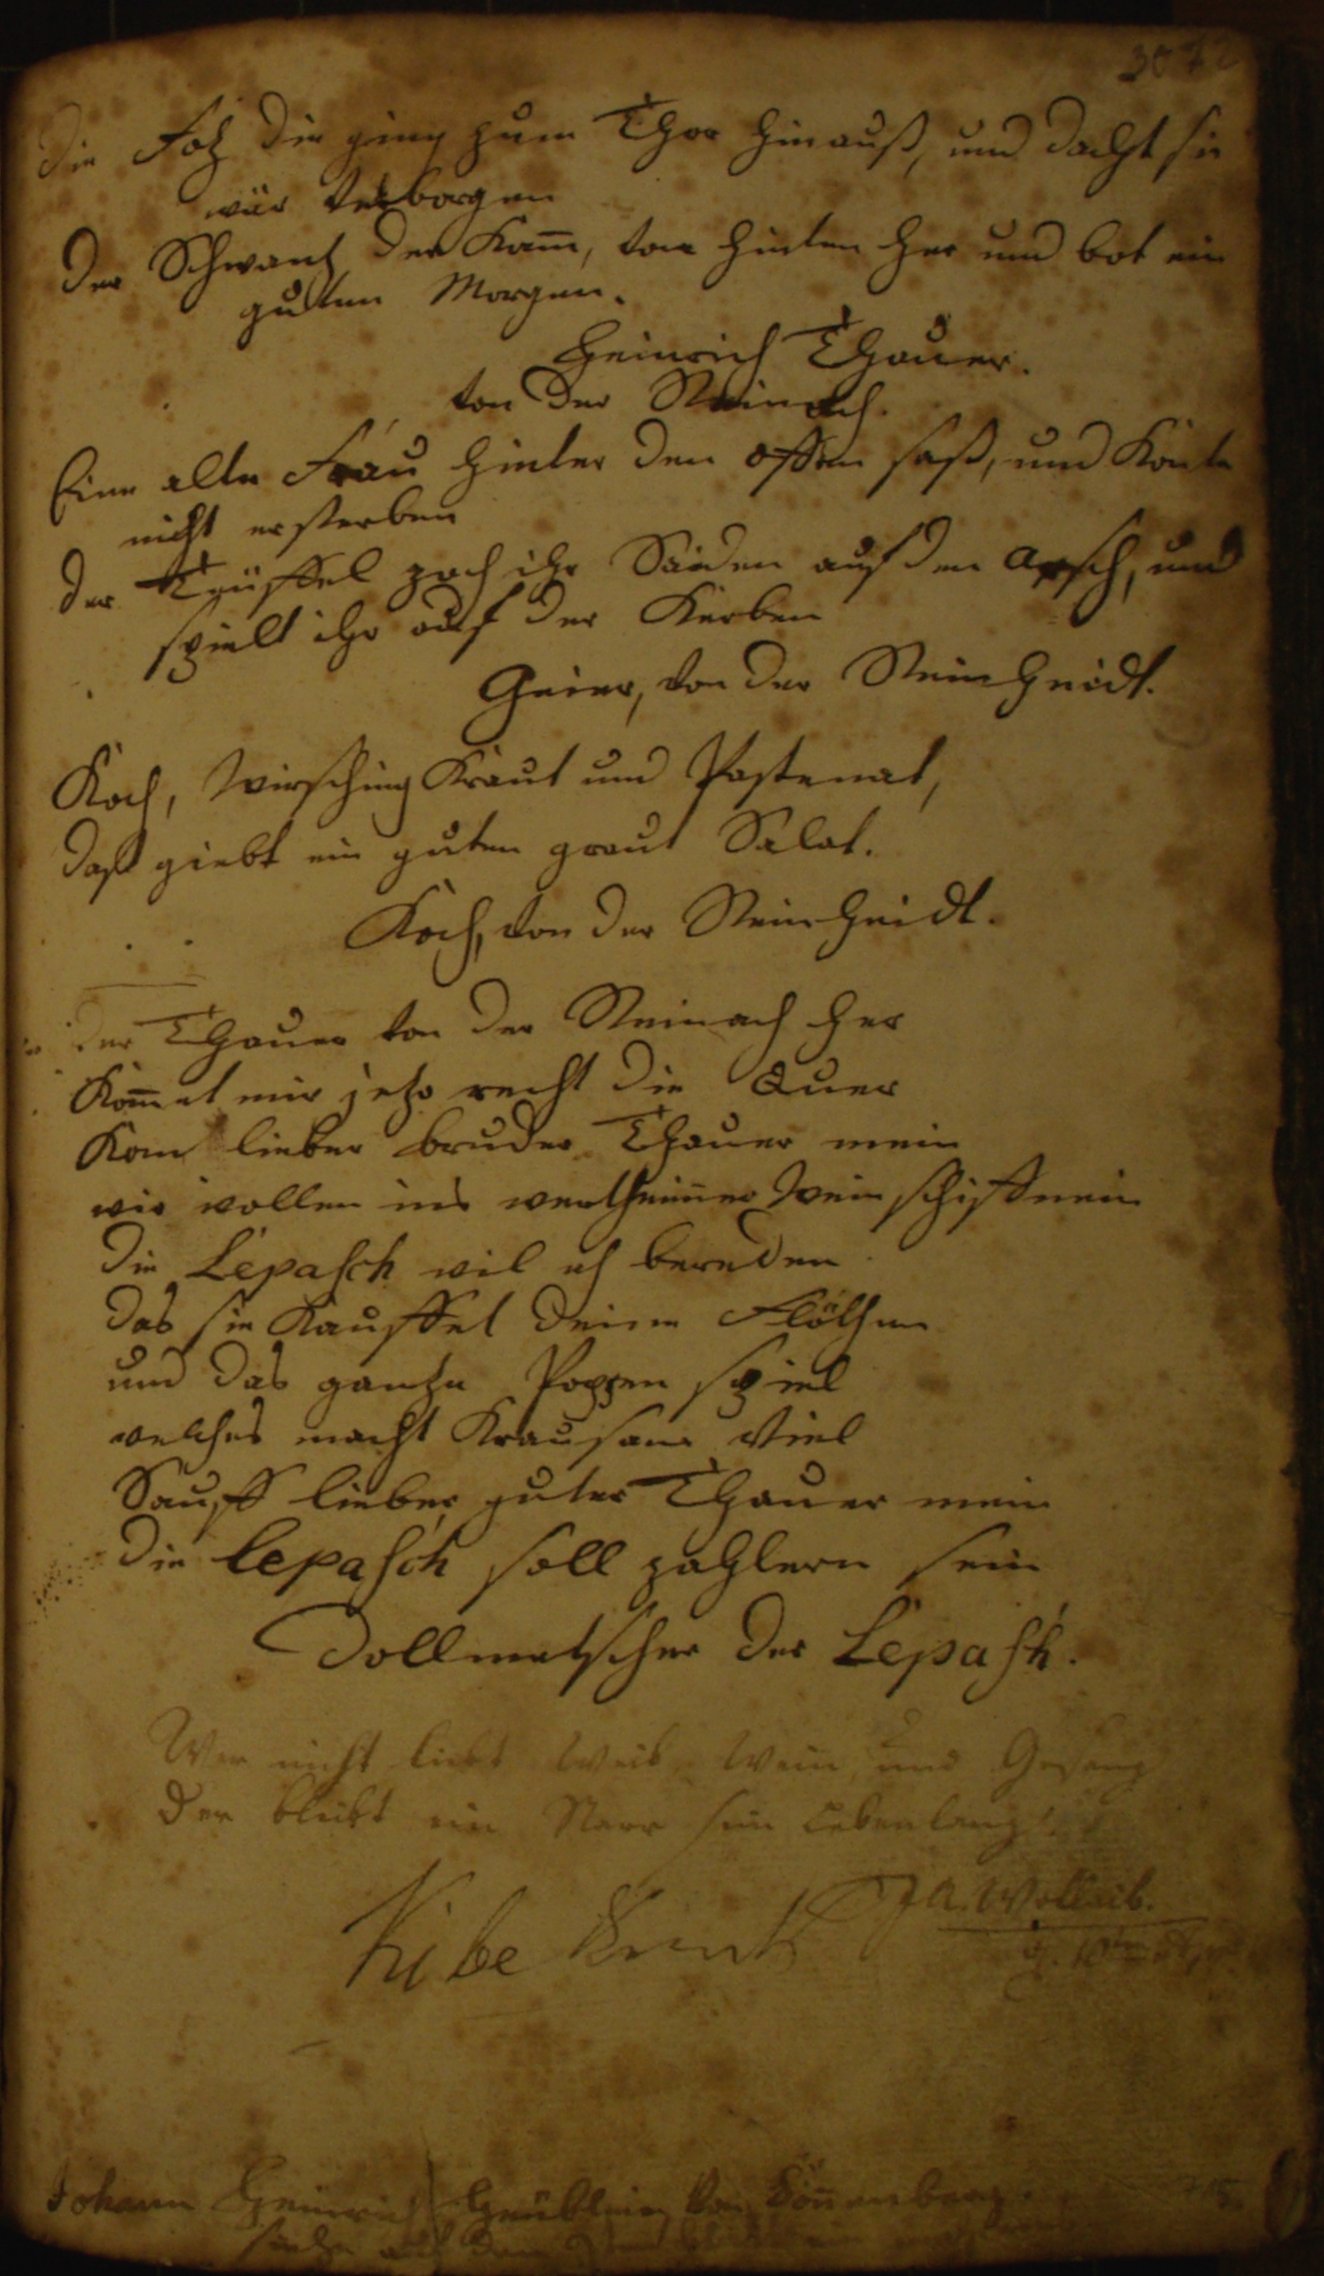 307
Die Fotz die ging zum Thor hinauß, und dacht sie
wär verborgen
Der Schwantz der Kam̄, von hinten her und bot ein
guten Morgen.
Heinrich Thauer.
von der Steinach.
Eine alte Frau hinter den offen saß, und Konte
nicht ersterben
der Teüffel zoch ihr Saiden auf den Arsch, und
spielt ihr auf der Kerben
Geier, von der Steinheidt.
Koch, Wirsching Kraut und Pastenat,
daß giebt ein guten graut Salat.
Koch, von der Steinheidt.
der Thauer von der Steinach her
Kom̄et mir jetzo recht die Quer
Kom lieber bruder Thauer mein
wir wollen ins wertheimer Wein schiff nein
die Lepasch wil ich bereden
das sie Kauffet deine Flöthen
und das gantze Poppen spiel
welches macht Krausam Viel
Sauff lieber guter Thauer mein
die Lepasch soll zahlern sein
Dollmetscher der Lepasch.
Wer nicht liebt Weib, Wein, und Gesang
Der bleibt ein Narr sein Lebenlang!
JA. Wollieb.
Johann Heinrich von Son̄enberg.